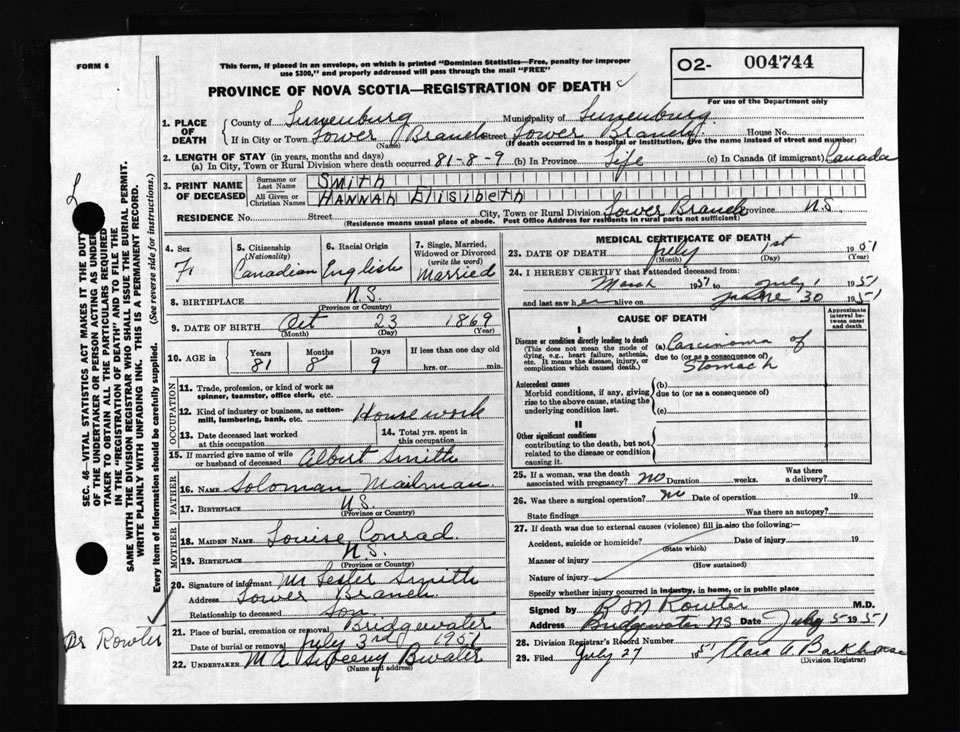 FORM 6
This form, if placed in an envelope, on which is printed "Dominion Statistics—Free, penalty for improper
use $300," and properly addressed will pass through the mail "FREE"
PROVINCE OF NOVA SCOTIA—REGISTRATION OF DEATH
O2- 004744
For use of the Department only
1. PLACE OF DEATH
County of Lunenburg Municipality of Lunenburg
If in City or Town Lower Branch Street Lower Branch House No.
(Name) (If death occurred in a hospital or institution, give the name instead of street and number)
2. LENGTH OF STAY (in years, months and days)
(a) In City, Town or Rural Division where death occurred 81-8-9 (b) In Province Life (c) In Canada (if immigrant) Canada
3. PRINT NAME OF DECEASED
Surname or Last Name Smith
All Given or Christian Names HANNAH Elisibeth
RESIDENCE No. Street City, Town or Rural Division Lower Branch Province N.S.
(Residence means usual place of abode. Post Office Address for residents in rural parts not sufficient)
4. Sex F.
5. Citizenship (Nationality) Canadian
6. Racial Origin English
7. Single, Married, Widowed or Divorced (write the word) Married
8. BIRTHPLACE N.S.
(Province or Country)
9. DATE OF BIRTH Oct 23 1869
(Month) (Day) (Year)
10. AGE in Years 81 Months 8 Days 9 If less than one day old hrs. or min.
OCCUPATION
11. Trade, profession, or kind of work as spinner, teamster, office clerk, etc.
12. Kind of industry or business, as cotton-mill, lumbering, bank, etc. House work
13. Date deceased last worked at this occupation
14. Total yrs. spent in this occupation
15. If married give name of wife or husband of deceased Albert Smith
FATHER
16. NAME Soloman Mailman
17. BIRTHPLACE N.S.
(Province or Country)
MOTHER
18. MAIDEN NAME Louise Conrad
19. BIRTHPLACE N.S.
(Province or Country)
20. Signature of informant Mr Lesler Smith
Address Lower Branch
Relationship to deceased Son
21. Place of burial, cremation or removal Bridgewater
Date of burial or removal July 3rd 1951
22. UNDERTAKER M A Sweeny Bwater
(Name and address)
MEDICAL CERTIFICATE OF DEATH
23. DATE OF DEATH July 1st 1951
(Month) (Day) (Year)
24. I HEREBY CERTIFY that I attended deceased from
March 1951 to July 1 1951
and last saw her alive on June 30 1951
CAUSE OF DEATH
Approximate interval between onset and death
I
Disease or condition directly leading to death
(This does not mean the mode of dying, e.g., heart failure, asthenia, etc. It means the disease, injury, or complication which caused death.)
(a) Carcinoma of
due to (or as a consequence of)
Stomach
Antecedent causes
Morbid conditions, if any, giving rise to the above cause, stating the underlying condition last.
(b)
due to (or as a consequence of)
(c)
II
Other significant conditions
contributing to the death, but not related to the disease or condition causing it.
25. If a woman, was the death associated with pregnancy? no Duration weeks. Was there a delivery?
26. Was there a surgical operation? no Date of operation 19
State findings Was there an autopsy?
27. If death was due to external causes (violence) fill in also the following:—
Accident, suicide or homicide? Date of injury 19
(State which)
Manner of injury
(How sustained)
Nature of injury
Specify whether injury occurred in industry, in home, or in public place
Signed by R M Rowter M.D.
Address Bridgewater NS Date July 5 1951
28. Division Registrar's Record Number
29. Filed July 27 1951 Clara A Barkhouse
(Division Registrar)
SEC. 46—VITAL STATISTICS ACT MAKES IT THE DUTY
OF THE UNDERTAKER OR PERSON ACTING AS UNDER-
TAKER TO OBTAIN ALL THE PARTICULARS REQUIRED
IN THE "REGISTRATION OF DEATH" AND TO FILE THE
SAME WITH THE DIVISION REGISTRAR WHO SHALL ISSUE THE BURIAL PERMIT.
WRITE PLAINLY WITH UNFADING INK. THIS IS A PERMANENT RECORD.
Every item of information should be carefully supplied. (See reverse side for instructions.)
L
Dr Rowter